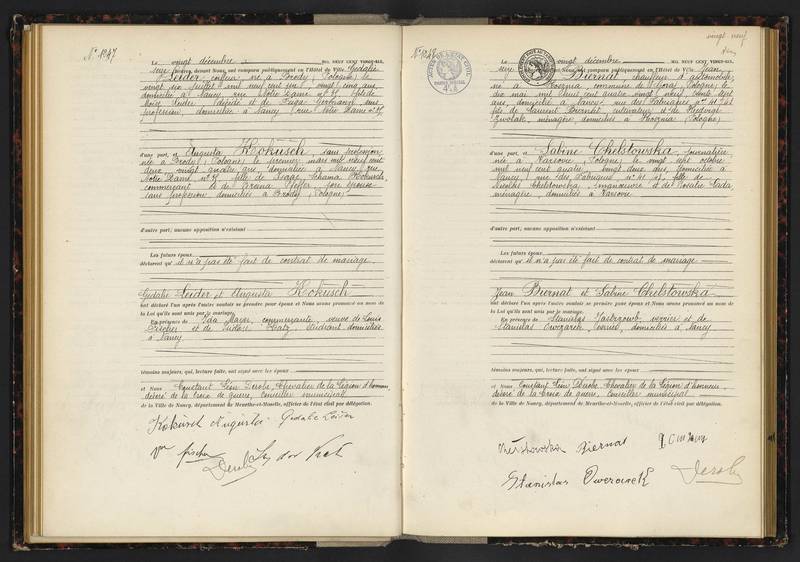 N° 1047
Le vingt décembre MIL NEUF CENT VINGT-SIX,
seize heures, devant Nous, ont comparu publiquement en l'Hôtel de Ville Gedalie
Leider, né à Brody, (Pologne) le
vingt six juillet mil neuf cent un, vingt cinq ans,
domicilié à Nancy, rue Notre Dame n° 37, fils de
Leider, décédé et de sans
profession, domiciliée à Nancy, rue Notre Dame n° 37
d'une part, et Augusta Kokusch, sans profession
née à Brody, (Pologne) le premier mars mil neuf cent
deux, vingt quatre ans domiciliée à Nancy, rue
Notre Dame n° 37, fille de Isaac Kokusch,
commerçant et de Pfeffer, son épouse
sans profession domiciliés à Brody (Pologne)
d'autre part; aucune opposition n'existant
Les futurs époux
déclarent qu'il n'a pas été fait de contrat de mariage
Gedalie Leider et Augusta Kokusch
ont déclaré l'un après l'autre vouloir se prendre pour époux et Nous avons prononcé au nom de
la Loi qu'ils sont unis par le mariage.
En présence de Ida commerçante, veuve de Louis
Fischer et de étudiant domiciliés
à Nancy
témoins majeurs, qui, lecture faite, ont signé avec les époux
et Nous Constant Léon Derobe, Chevalier de la Légion d'honneur,
décoré de la Croix de guerre, conseiller municipal
de la Ville de Nancy, département de Meurthe-et-Moselle, officier de l'état civil par délégation.
Kokusch Augusta Gedalie Leider
Vve Fischer
Derobe
vingt neuf
N° 1048
Le vingt décembre MIL NEUF CENT VINGT-SIX,
seize heures, devant Nous, ont comparu publiquement en l'Hôtel de Ville Jean
Biernat chauffeur d'automobile,
né à commune de (Pologne) le
dix mai mil huit cent quatre vingt neuf, trente sept
ans, domicilié à Nancy, rue des Fabriques n° 41
fils de Laurent Biernat, cultivateur et de Hedwige
ménagère, domiciliés à (Pologne)
d'une part, et Sabine Chelstowska, journalière,
née à Varsovie, (Pologne) le vingt sept octobre
mil neuf cent quatre, vingt deux ans, domiciliée à
Nancy, rue des Fabriques n° 41 fille de
Nicolas Chelstowska, manœuvre et de Rosalie
ménagère, domiciliés à Varsovie
d'autre part; aucune opposition n'existant
Les futurs époux
déclarent qu'il n'a pas été fait de contrat de mariage
Jean Biernat et Sabine Chelstowska
ont déclaré l'un après l'autre vouloir se prendre pour époux et Nous avons prononcé au nom de
la Loi qu'ils sont unis par le mariage.
En présence de Stanislas verrier et de
Stanislas Owczarek, domiciliés à Nancy
témoins majeurs, qui, lecture faite, ont signé avec les époux
et Nous, Constant Léon Derobe, Chevalier de la Légion d'honneur,
décoré de la Croix de guerre, conseiller municipal
de la Ville de Nancy, département de Meurthe-et-Moselle, officier de l'état civil par délégation.
Chelstowska Biernat
Stanislas Owczarek Derobe